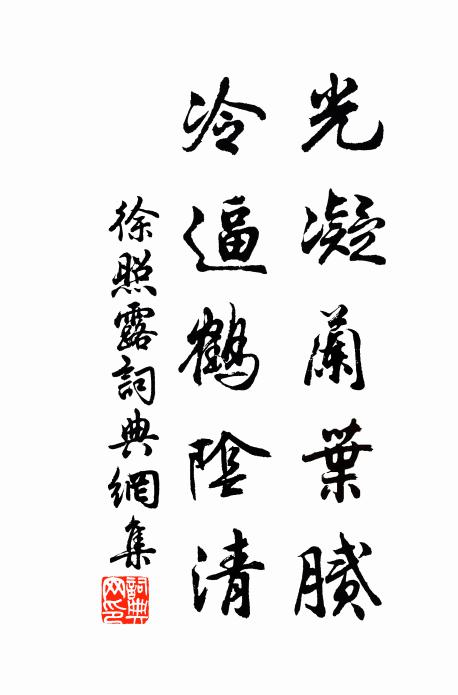 光凝蘭葉膩
冷逼鶴陰清
徐照露詞典網集
詞典網印